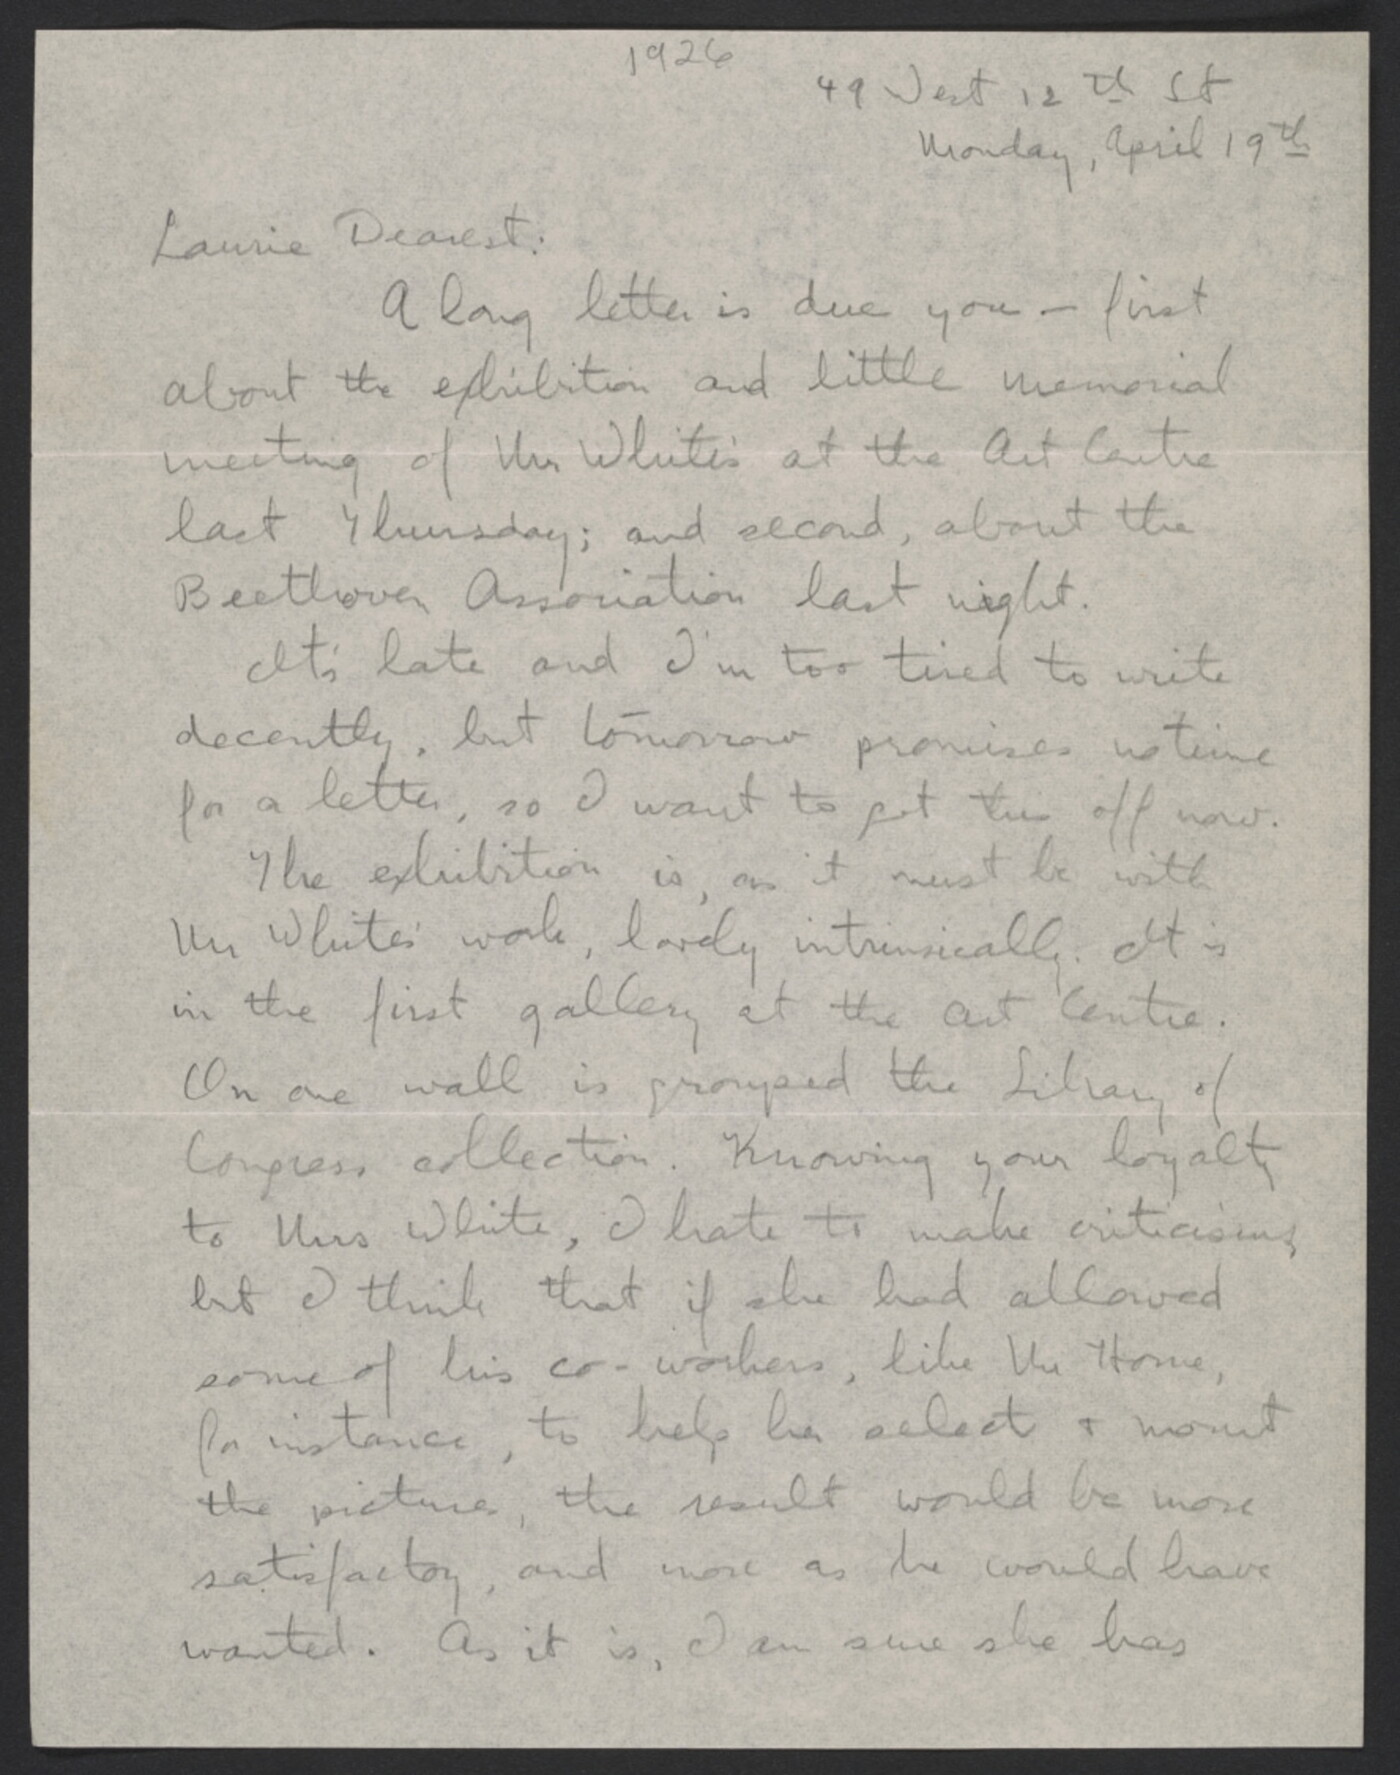 1926
49 West 12th St
Monday, April 19th
Laurie Dearest:
A long letter is due you – first
about the exhibition and little memorial
meeting of Mr White's at the Art Centre
last Thursday; and second, about the
Beethoven Association last night.
It's late and I'm too tired to write
decently, but tomorrow promises no time
for a letter, so I want to get this off now.
The exhibition is, as it must be with
Mr White's work, lovely intrinsically. It is
in the first gallery at the Art Centre.
On one wall is grouped the Library of
Congress collection. Knowing your loyalty
to Mrs White, I hate to make criticisms,
but I think that if she had allowed
some of his co-workers, like Mr Horne,
for instance, to help her select + mount
the pictures, the result would be more
satisfactory, and more as he would have
wanted. As it is, I am sure she has